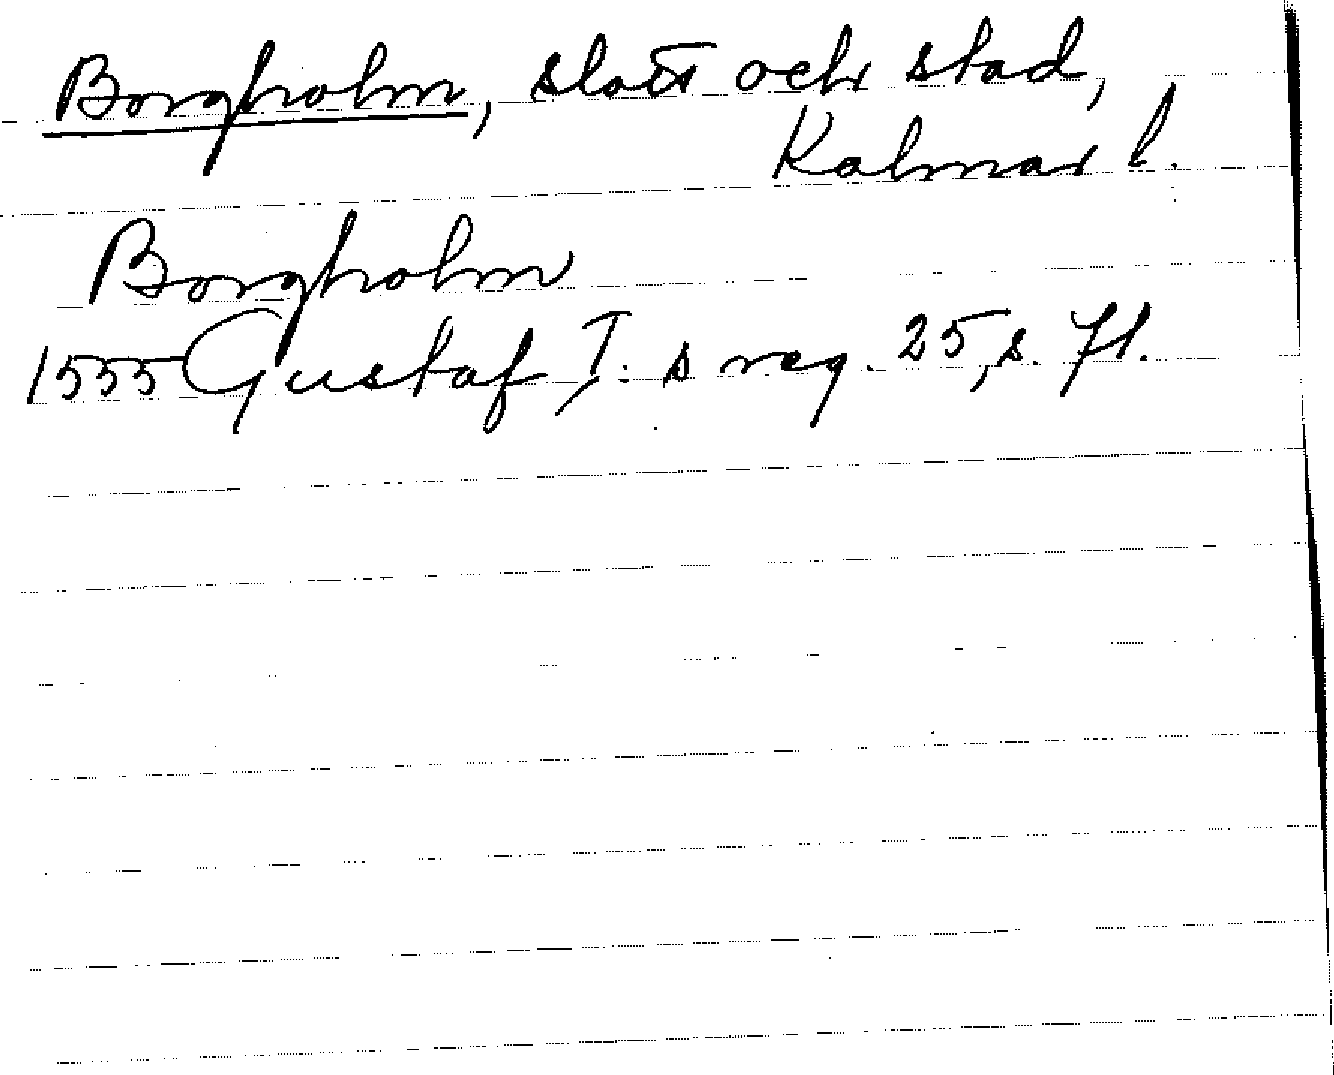 Borgholm, slott och stad,
Kalmar l.
Borgholm
1555 Gustaf I: s reg. 25, s. 71.